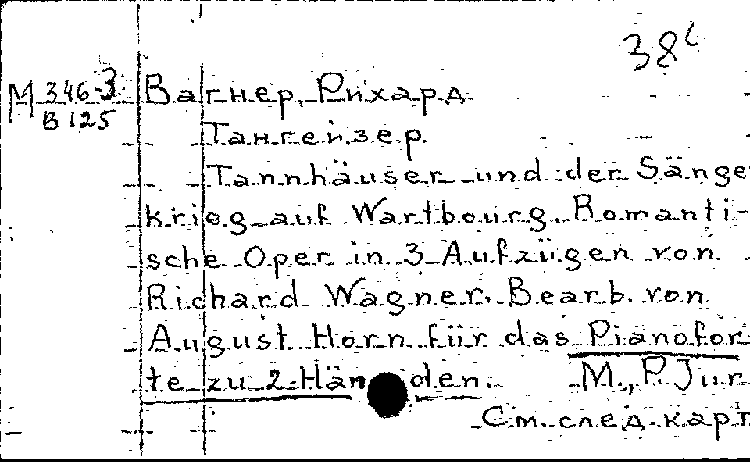 38
М 346-3 Вагнер, Рихард
В 125
Тангейзер.
Tannhäuser und der Sänge
krieg auf Wartbourg. Romanti-
sche Oper in 3 Aufzügen von
Richard Wagner. Bearb. von
August Horn für das Pianofor
te zu 2 Händen. M., P. Jur
См. след. карт